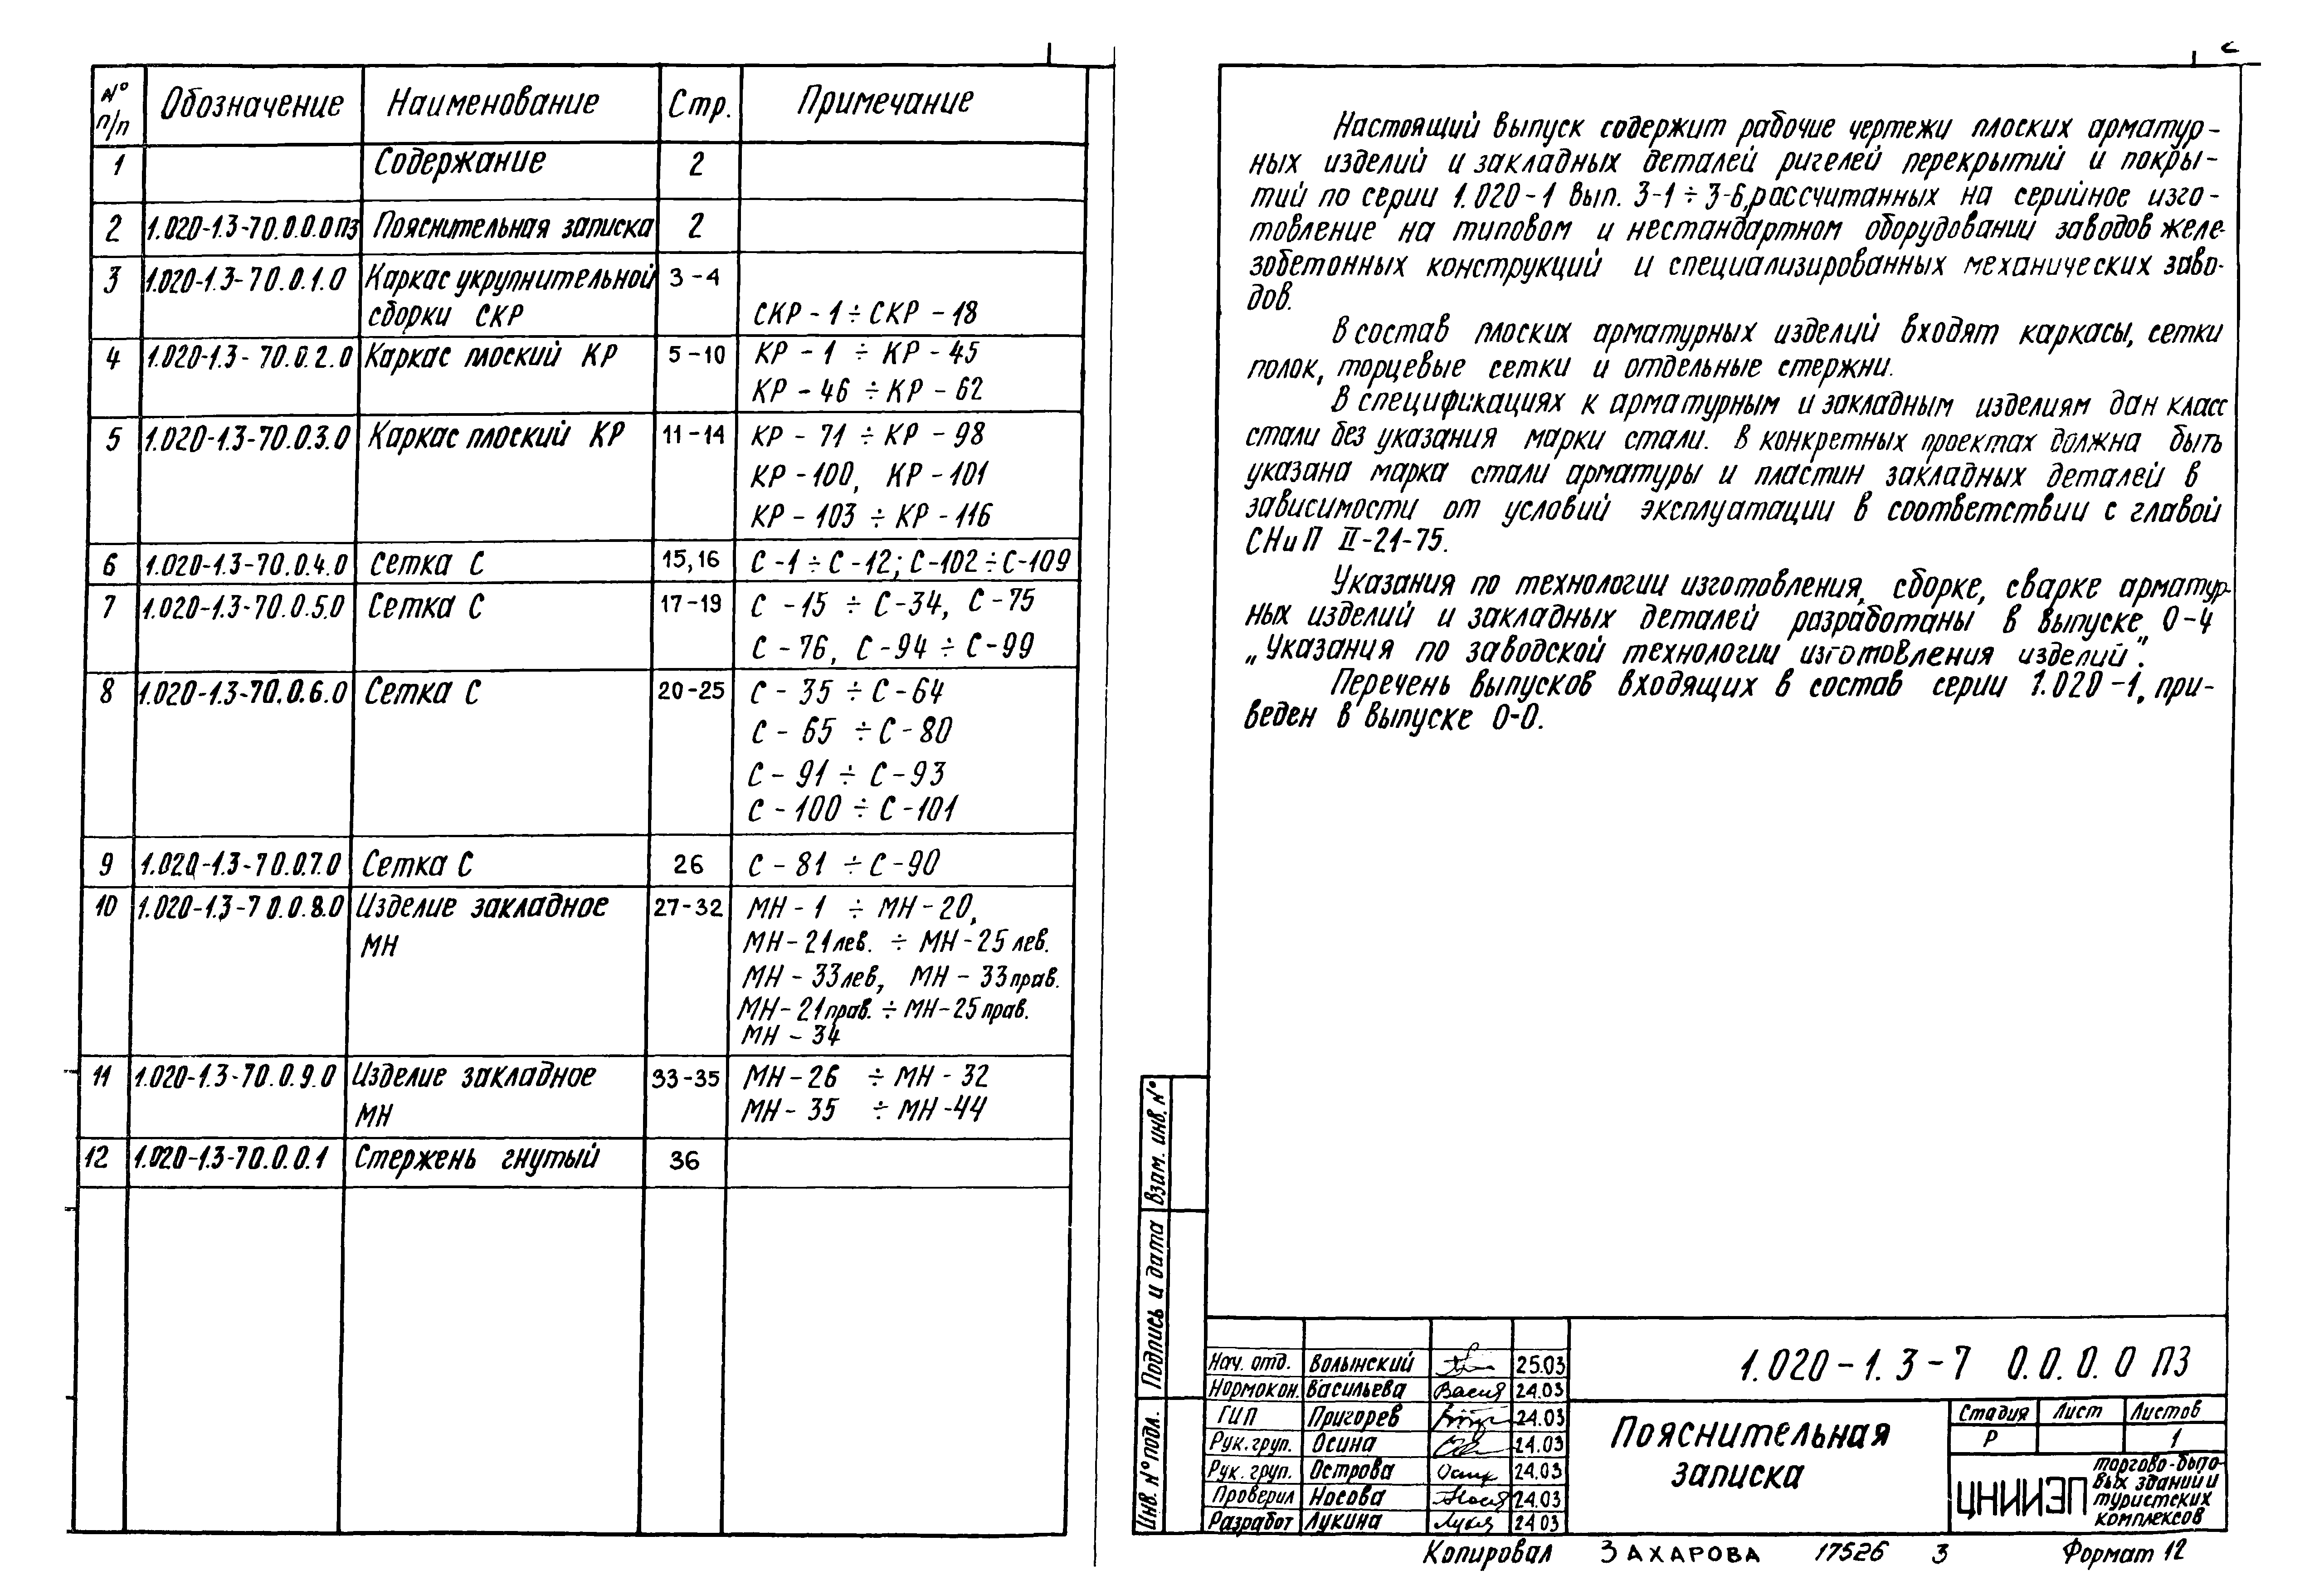 № п/п Обозначение Наименование Стр. Примечание
1 Содержание 2
2 1.020-1.3-7 0.0.0.0ПЗ Пояснительная записка 2
3 1.020-1.3-7 0.0.1.0 Каркас укрупнительной 3-4
сборки СКР СКР-1÷СКР-18
4 1.020-1.3-7 0.0.2.0 Каркас плоский КР 5-10 КР-1 ÷ КР-45
КР-46 ÷ КР-62
5 1.020-1.3-7 0.0.3.0 Каркас плоский КР 11-14 КР-71 ÷ КР-98
КР-100, КР-101
КР-103 ÷ КР-116
6 1.020-1.3-7 0.0.4.0 Сетка С 15,16 С-1÷С-12; С-102÷С-109
7 1.020-1.3-7 0.0.5.0 Сетка С 17-19 С-15 ÷ С-34, С-75
С-76, С-94 ÷ С-99
8 1.020-1.3-7 0.0.6.0 Сетка С 20-25 С-35 ÷ С-64
С-65 ÷ С-80
С-91 ÷ С-93
С-100 ÷ С-101
9 1.020-1.3-7 0.0.7.0 Сетка С 26 С-81 ÷ С-90
10 1.020-1.3-7 0.0.8.0 Изделие закладное 27-32 МН-1 ÷ МН-20,
МН МН-21лев. ÷ МН-25 лев.
МН-33лев, МН-33прав.
МН-21прав. ÷ МН-25 прав.
МН-34
11 1.020-1.3-7 0.0.9.0 Изделие закладное 33-35 МН-26 ÷ МН-32
МН МН-35 ÷ МН-44
12 1.020-1.3-7 0.0.0.1 Стержень гнутый 36
Настоящий выпуск содержит рабочие чертежи плоских арматур-
ных изделий и закладных деталей ригелей перекрытий и покры-
тий по серии 1.020-1 вып. 3-1÷3-6, рассчитанных на серийное изго-
товление на типовом и нестандартном оборудовании заводов желе-
зобетонных конструкций и специализированных механических заво-
дов.
В состав плоских арматурных изделий входят каркасы, сетки
полок, торцевые сетки и отдельные стержни.
В спецификациях к арматурным и закладным изделиям дан класс
стали без указания марки стали. В конкретных проектах должна быть
указана марка стали арматуры и пластин закладных деталей в
зависимости от условий эксплуатации в соответствии с главой
СНиП II-21-75.
Указания по технологии изготовления, сборке, сварке арматур-
ных изделий и закладных деталей разработаны в выпуске 0-4
„Указания по заводской технологии изготовления изделий".
Перечень выпусков входящих в состав серии 1.020-1, при-
веден в выпуске 0-0.
Взам. инв. №
Подпись и дата
Инв. № подл.
Нач. отд. Волынский 25.03
Нормокон. Васильева 24.03
ГИП Пригорев 24.03
Рук. груп. Осина 24.03
Рук. груп. Острова 24.03
Проверил Носова 24.03
Разработ Лукина 24.03
1.020-1.3-7 0.0.0.0 ПЗ
Пояснительная
записка
Стадия Лист Листов
Р 1
ЦНИИЭП
торгово-быто-
вых зданий и
туристских
комплексов
Копировал ЗАХАРОВА 17526 3 Формат 12